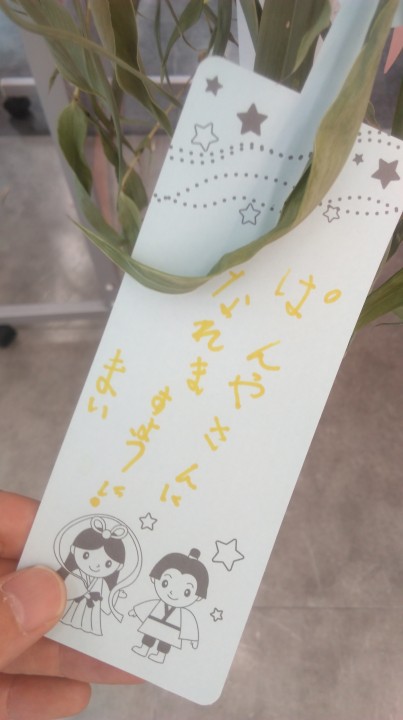 ぱんやさんに
なれますように
まい